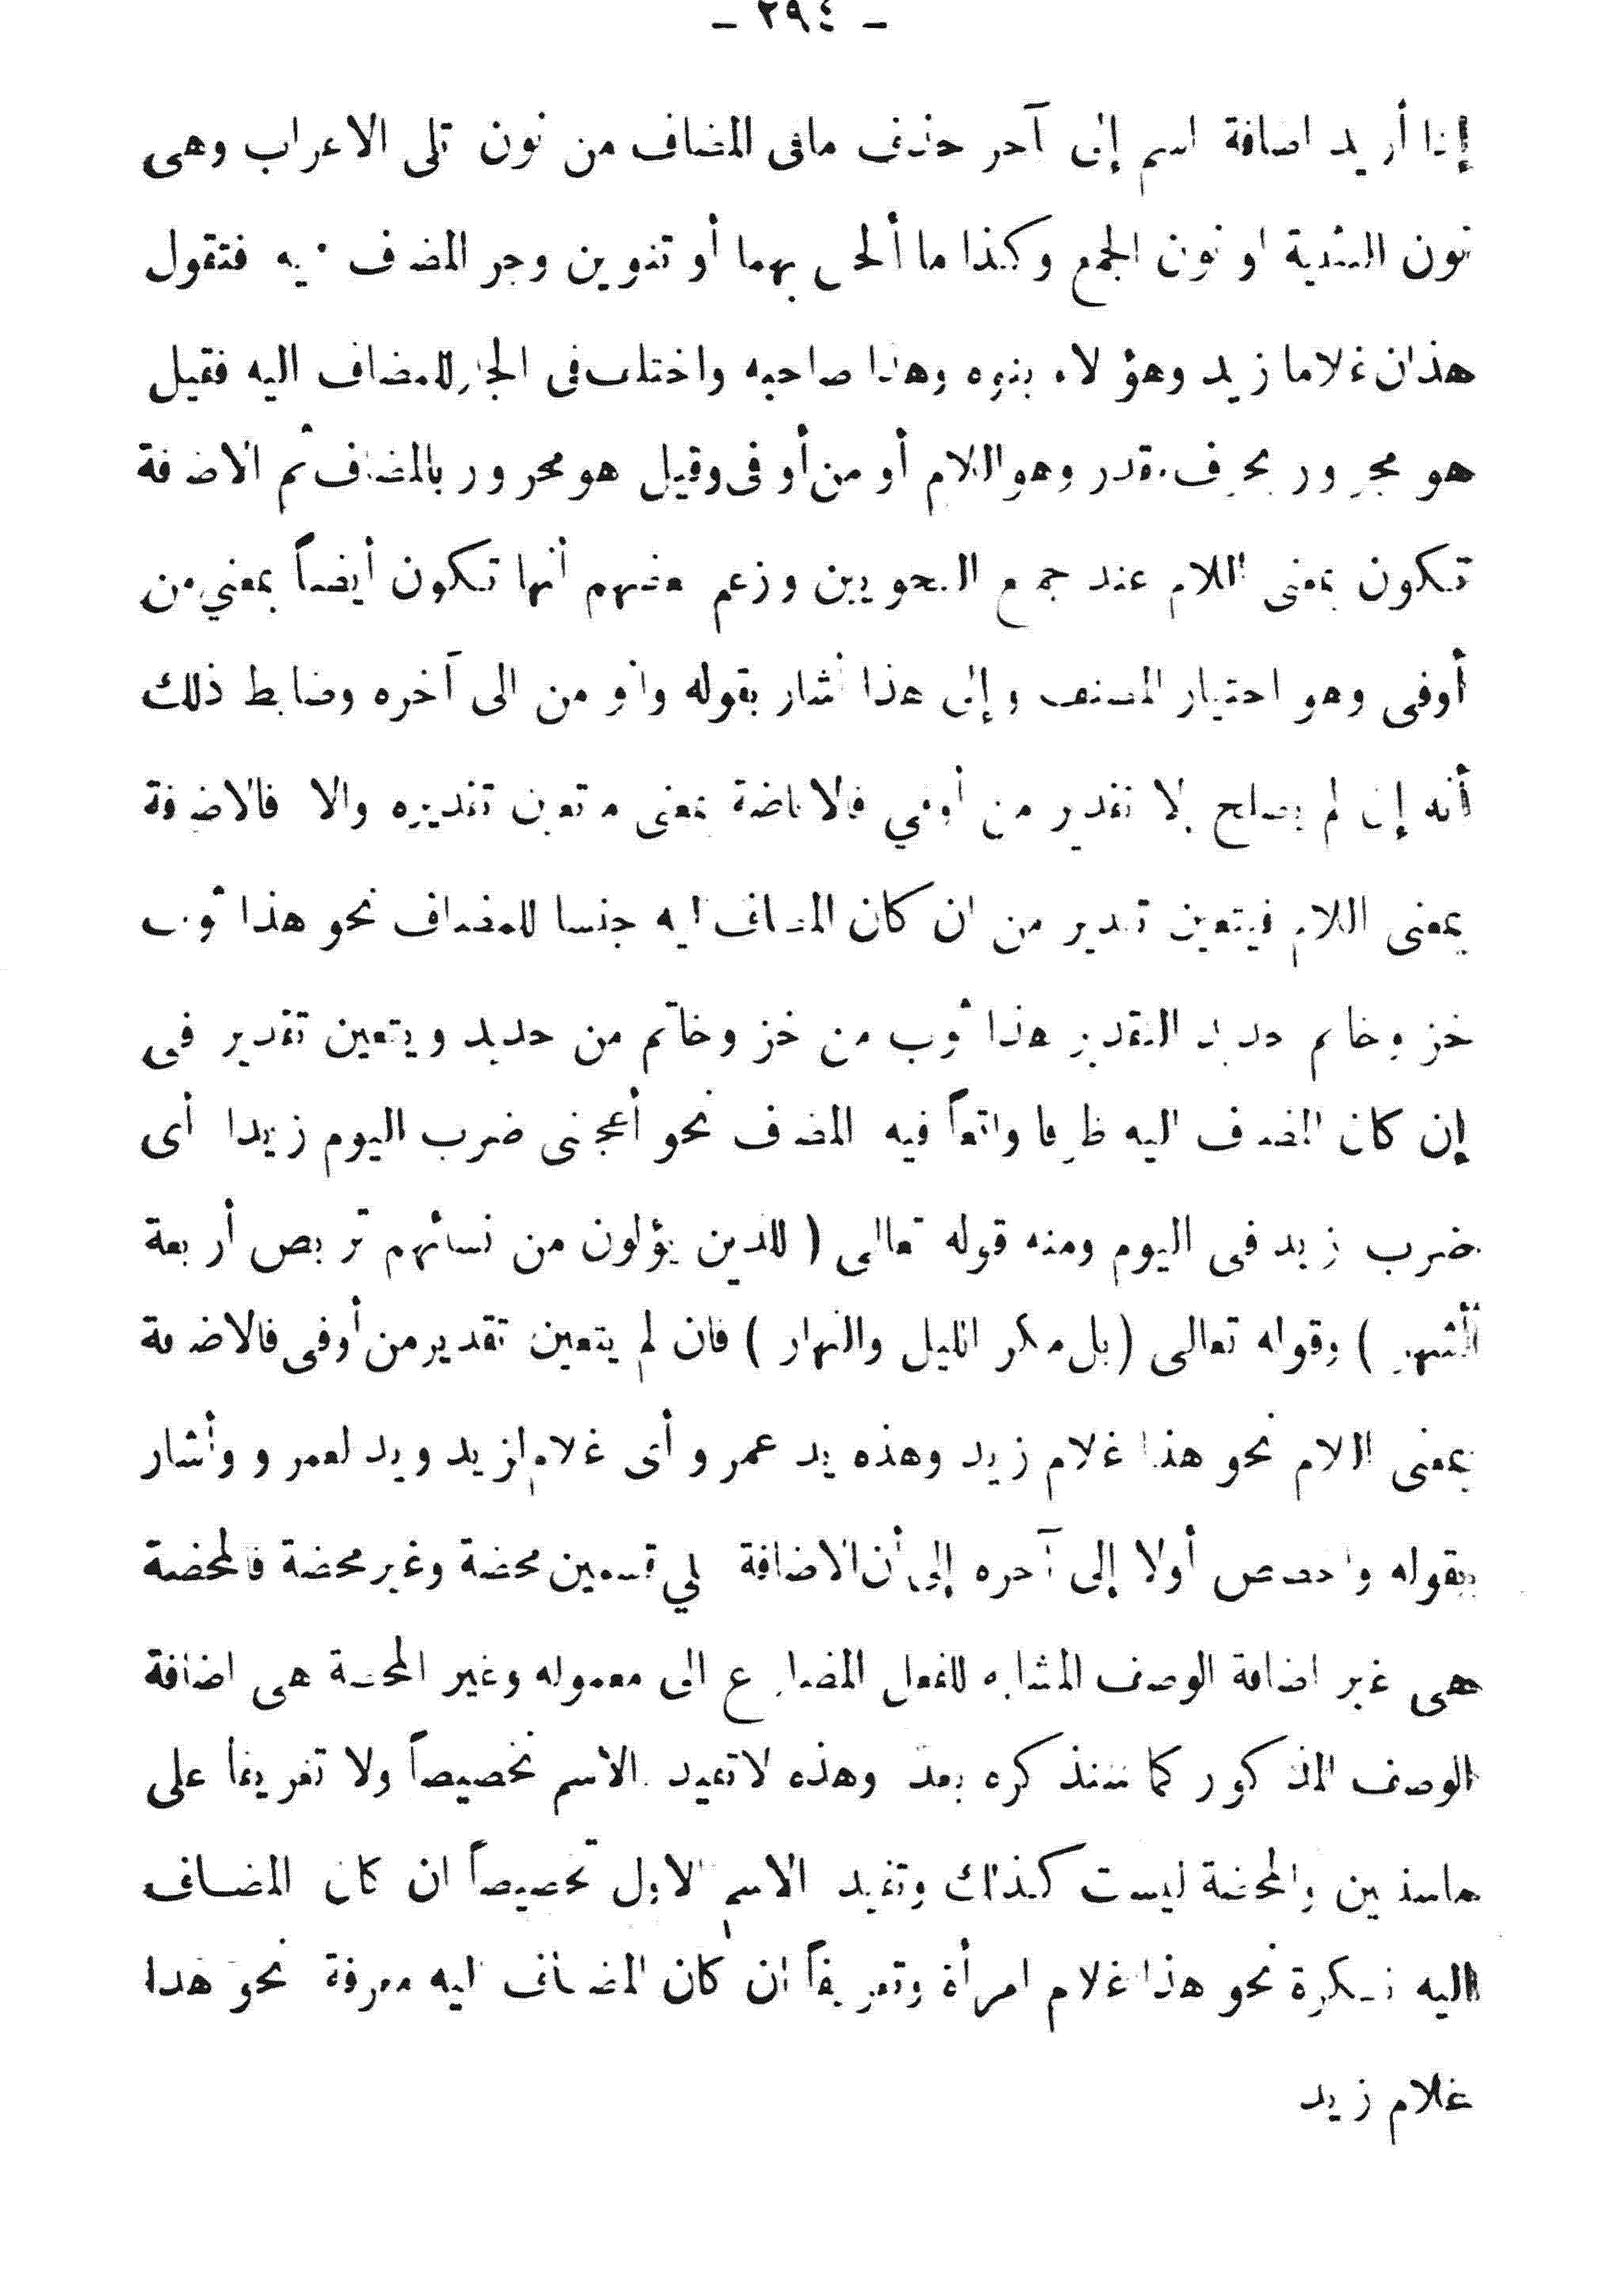 - ٢٩٤ -
إذا أريد اضافة اسم إلى آخر حذف مافى المضاف من نون تلى الاعراب وهى
نون التثنية او نون الجمع وكذا ما ألحق بهما أو تنوين وجر المضاف اليه فتقول
هذان غلاما زيد وهؤلاء بنوه وهذا صاحبه واختلف فى الجار للمضاف اليه فقيل
هو مجرور بحرف مقدر وهو اللام أو من أو فى وقيل هو مجرور بالمضاف ثم الاضافة
تكون بمعنى اللام عند جميع النحويين وزعم بعضهم أنها تكون أيضاً بمعني من
أوفى وهو اختيار المصنف وإلى هذا أشار بقوله وانو من الى آخره وضابط ذلك
أنه إن لم يصلح إلا تقدير من أوفي فالاضافة بمعنى ما تعين تقديره والا فالاضافة
بمعنى اللام فيتعين تقدير من ان كان المضاف اليه جنسا للمضاف نحو هذا ثوب
خز وخاتم حديد التقدير هذا ثوب من خز وخاتم من حديد ويتعين تقدير فى
إن كان المضاف اليه ظرفا واقعاً فيه المضاف نحو أعجبنى ضرب اليوم زيدا أى
ضرب زيد فى اليوم ومنه قوله تعالى ( للذين يؤلون من نسائهم تربص أربعة
أشهر ) وقوله تعالى ( بل مكر الليل والنهار ) فان لم يتعين تقدير من أوفى فالاضافة
بمعنى اللام نحو هذا غلام زيد وهذه يد عمرو أى غلام لزيد ويد لعمرو وأشار
بقوله واخصص أولا إلى آخره إلى أن الاضافة على قسمين محضة وغير محضة فالمحضة
هى غير اضافة الوصف المشابه للفعل المضارع الى معموله وغير المحضة هى اضافة
الوصف المذكور كما سنذكره بعد وهذه لا تفيد الاسم تخصيصاً ولا تعريفا على
ماسنبين والمحضة ليست كذلك وتفيد الاسم الاول تخصيصاً ان كان المضاف
اليه نكرة نحو هذا غلام امرأة وتعريفاً ان كان المضاف اليه معرفة نحو هذا
غلام زيد